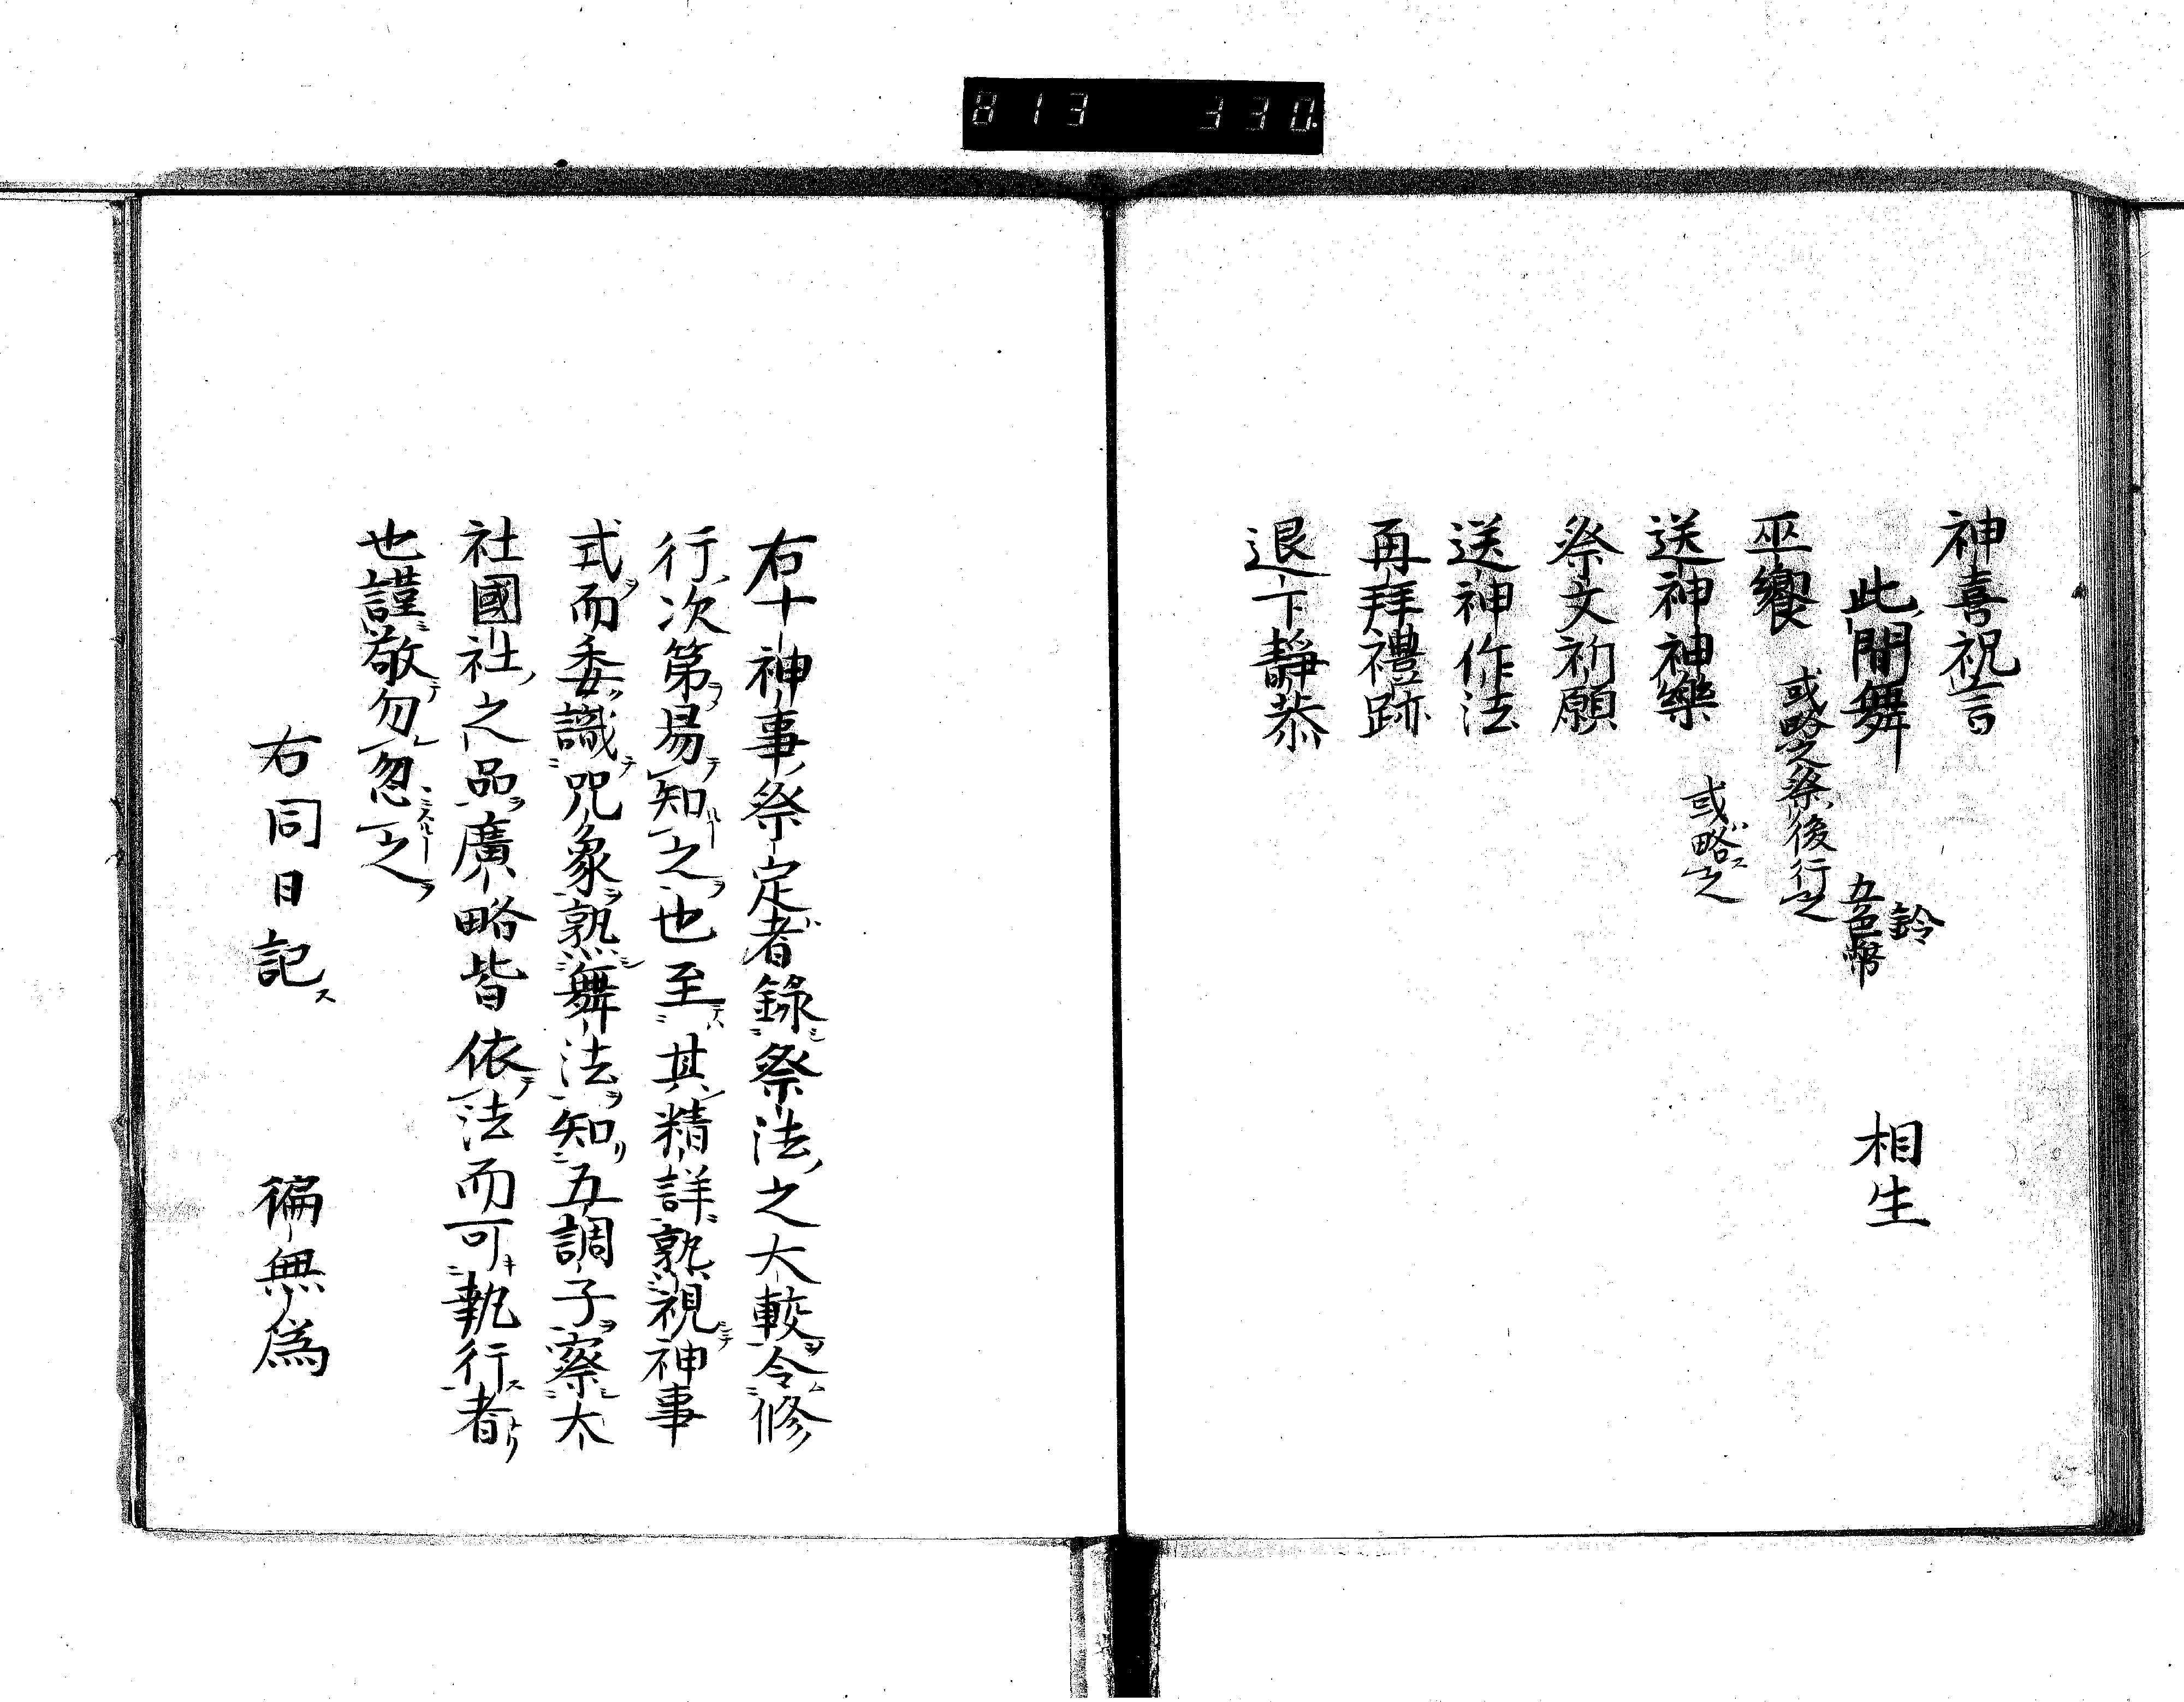 813 330.
神喜祝言
此間舞 鈴 五色幣 相生
巫饗 或略之祭後行之
送神神樂 或略之
祭文祈願
送神作法
再拜禮跡
退下靜恭
右十神事祭定者錄祭法之大較令修
行次第易知之也至其精詳熟視神事
式而委識咒象熟舞法知五調子察大
社國社之品廣略皆依法而可執行者
也謹敬勿忽之
右同日記ス 徧無為